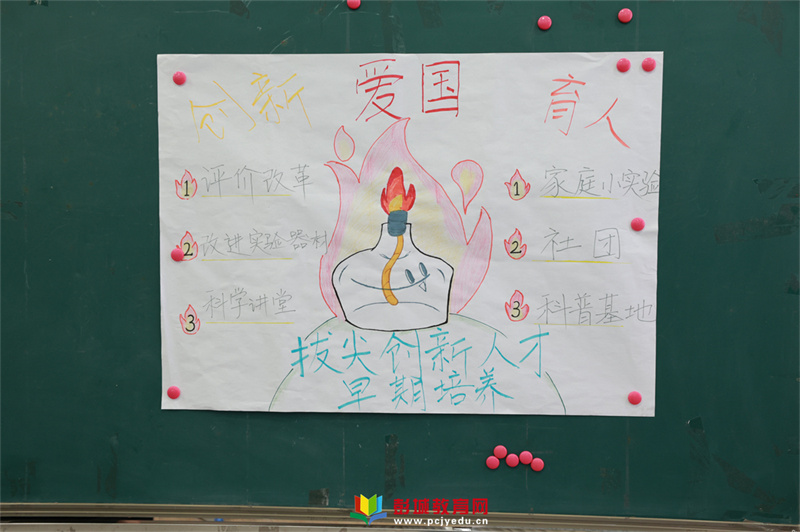 创新
爱国
育人
1 评价改革
2 改进实验器材
3 科学讲堂
1 家庭小实验
2 社团
3 科普基地
拔尖创新人才
早期培养
www.pcjyedu.cn